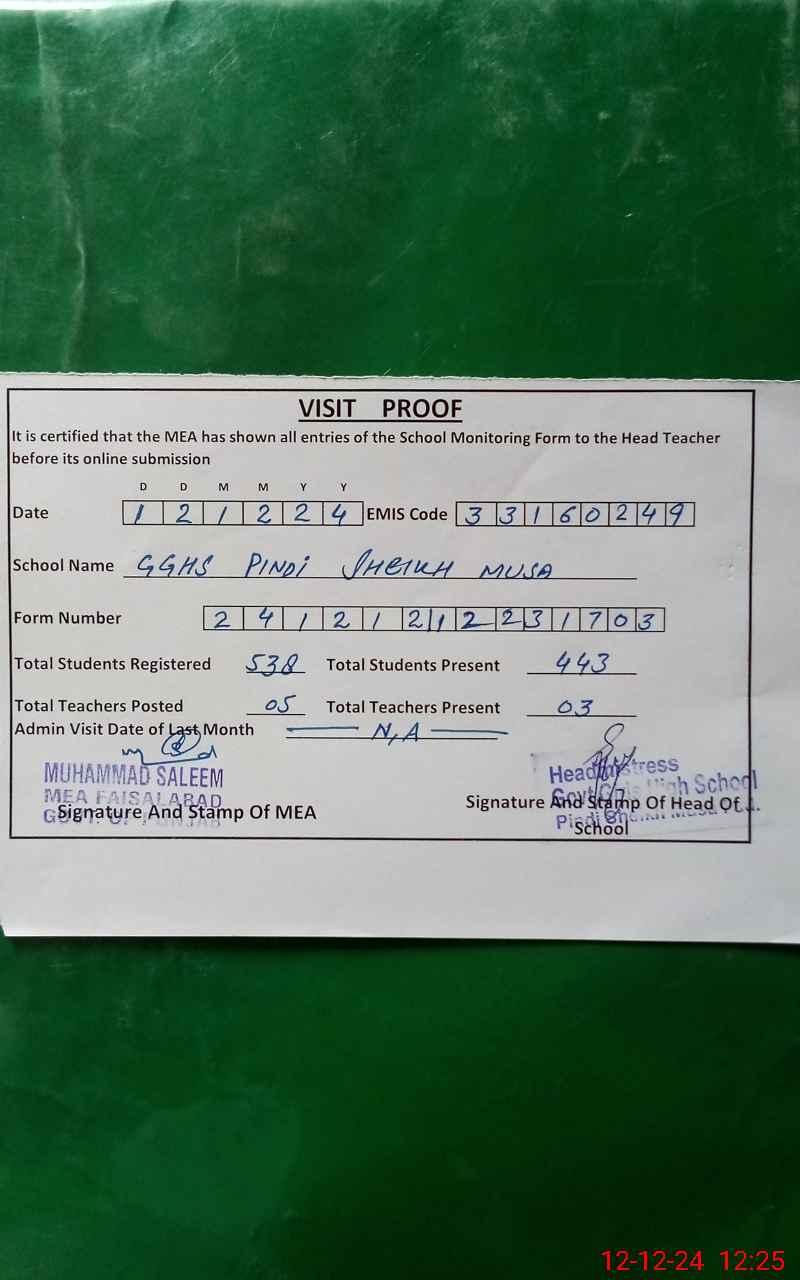 VISIT PROOF
It is certified that the MEA has shown all entries of the School Monitoring Form to the Head Teacher
before its online submission
D D M M Y Y
Date 1 2 1 2 2 4 EMIS Code 3 3 1 6 0 2 4 9
School Name GGHS PINDI SHEIKH MUSA
Form Number 2 4 1 2 1 2 1 2 2 3 1 7 0 3
Total Students Registered 538 Total Students Present 443
Total Teachers Posted 05 Total Teachers Present 03
Admin Visit Date of Last Month N,A
MUHAMMAD SALEEM
MEA FAISALABAD
GOVT. OF PUNJAB
Signature And Stamp Of MEA
Headmistress
Govt. Girls High School
Pindi Sheikh Musa
Signature And Stamp Of Head Of
School
12-12-24 12:25